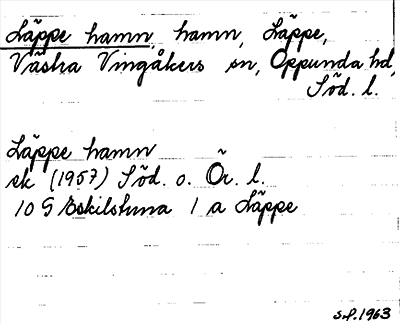 Läppe hamn, hamn, Läppe,
Västra Vingåkers sn, Oppunda hd,
Söd. l.
Läppe hamn
ek (1957) Söd. o. Ör. l.
10 G Eskilstuna 1 a Läppe
s.f. 1963